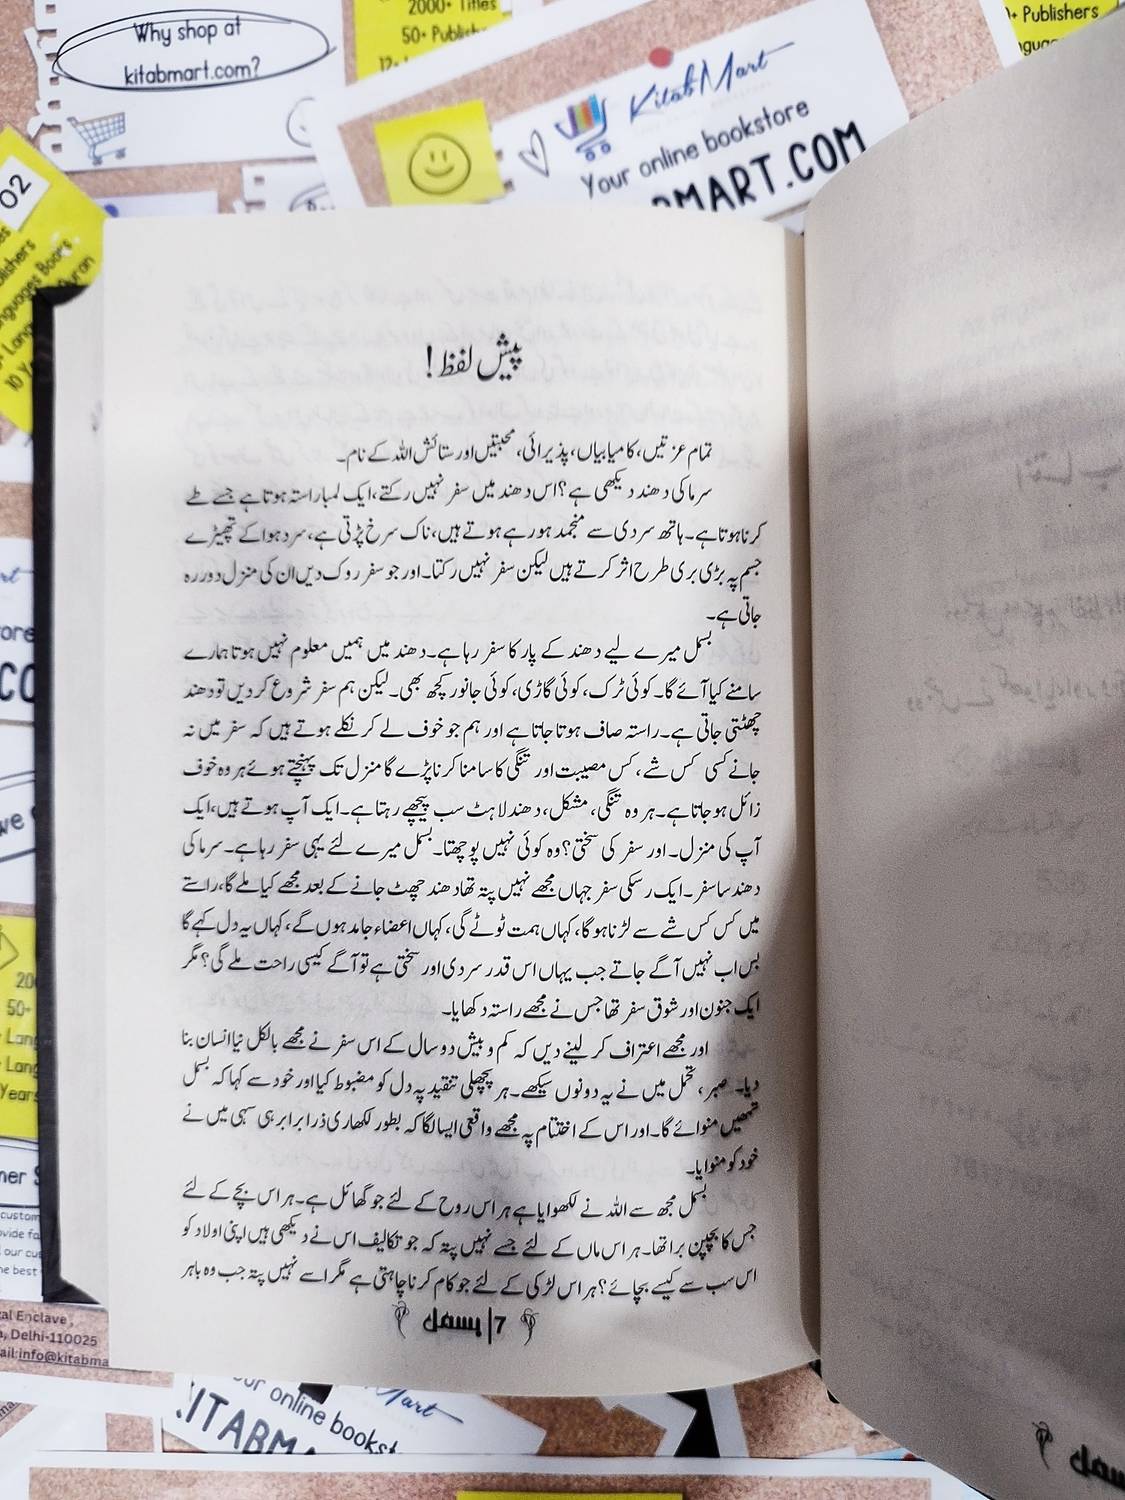 Why shop at
kitabmart.com?
2000+ Titles
50+ Publish
KitabMart
Your online bookstore
BMART.COM
Publishers
02
پیش لفظ!
تمام عزتیں، کامیابیاں، پذیرائی، محبتیں اور ستائش اللہ کے نام۔
سرما کی دھند دیکھی ہے؟ اس دھند میں سفر نہیں رکتے، ایک لمبا راستہ ہوتا ہے جسے طے
کرنا ہوتا ہے۔ ہاتھ سردی سے منجمد ہو رہے ہوتے ہیں، ناک سرخ پڑتی ہے، سرد ہوا کے تھپیڑے
جسم پہ بڑی بری طرح اثر کرتے ہیں لیکن سفر نہیں رکتا۔ اور جو سفر روک دیں ان کی منزل دور رہ
جاتی ہے۔
بسمل میرے لیے دھند کے پار کا سفر رہا ہے۔ دھند میں ہمیں معلوم نہیں ہوتا ہمارے
سامنے کیا آئے گا۔ کوئی ٹرک، کوئی گاڑی، کوئی جانور کچھ بھی۔ لیکن ہم سفر شروع کر دیں تو دھند
چھٹتی جاتی ہے۔ راستہ صاف ہوتا جاتا ہے اور ہم جو خوف لے کر نکلے ہوتے ہیں کہ سفر میں نہ
جانے کسی کس شے، کس مصیبت اور تنگی کا سامنا کرنا پڑے گا منزل تک پہنچتے ہوئے ہر وہ خوف
زائل ہو جاتا ہے۔ ہر وہ تنگی، مشکل، دھندلاہٹ سب پیچھے رہتا ہے۔ ایک آپ ہوتے ہیں، ایک
آپ کی منزل۔ اور سفر کی سختی؟ وہ کوئی نہیں پوچھتا۔ بسمل میرے لئے یہی سفر رہا ہے۔ سرما کی
دھند سا سفر۔ ایک رسکی سفر جہاں مجھے نہیں پتہ تھا دھند چھٹ جانے کے بعد مجھے کیا ملے گا، راستے
میں کس کس شے سے لڑنا ہو گا، کہاں ہمت ٹوٹے گی، کہاں اعضاء جامد ہوں گے، کہاں یہ دل کہے گا
بس اب نہیں آگے جاتے جب یہاں اس قدر سردی اور سختی ہے تو آگے کیسی راحت ملے گی؟ مگر
ایک جنون اور شوق سفر تھا جس نے مجھے راستہ دکھایا۔
اور مجھے اعتراف کر لینے دیں کہ کم و بیش دو سال کے اس سفر نے مجھے بالکل نیا انسان بنا
دیا۔ صبر، تحمل میں نے یہ دونوں سیکھے۔ ہر پچھلی تنقید پہ دل کو مضبوط کیا اور خود سے کہا کہ بسمل
تمہیں منوائے گا۔ اور اس کے اختتام پہ مجھے واقعی ایسا لگا کہ بطور لکھاری ذرا برابر ہی سہی میں نے
خود کو منوایا۔
بسمل مجھ سے اللہ نے لکھوایا ہے ہر اس روح کے لئے جو گھائل ہے۔ ہر اس بچے کے لئے
جس کا بچپن برا تھا۔ ہر اس ماں کے لئے جسے نہیں پتہ کہ جو تکالیف اس نے دیکھی ہیں اپنی اولاد کو
اس سب سے کیسے بچائے؟ ہر اس لڑکی کے لئے جو کام کرنا چاہتی ہے مگر اسے نہیں پتہ جب وہ باہر
7| بسمل
انتساب
Enclave,
Delhi-110025
info@kitabma
our online bookst
KITABMA
Mart
بسمل